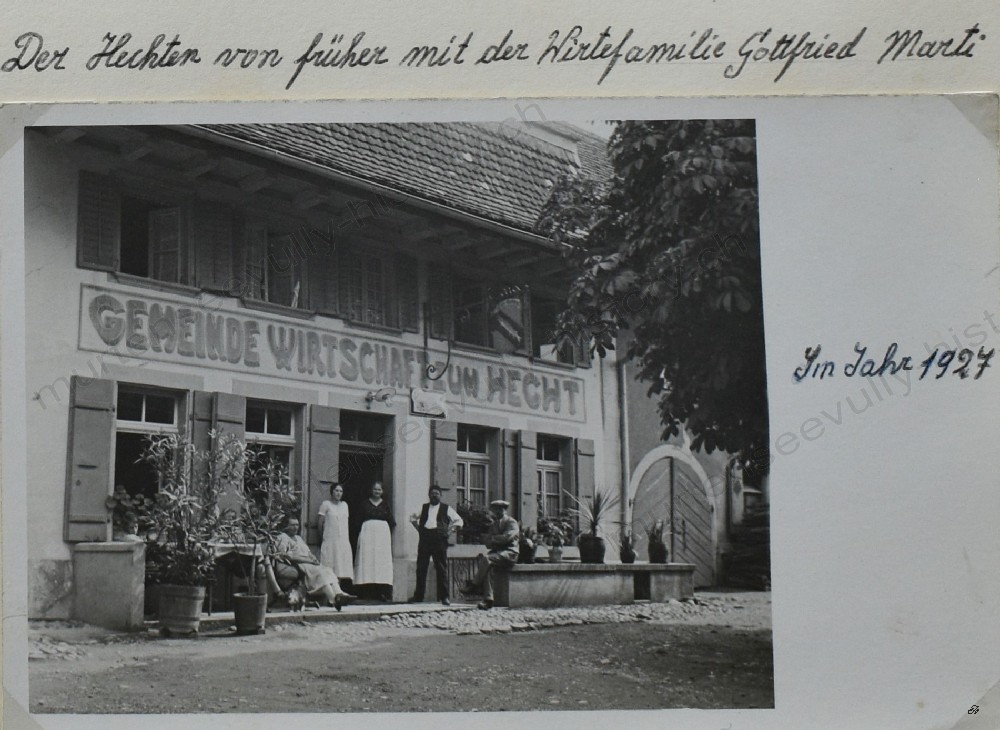 Der Hechten von früher mit der Wirtefamilie Gottfried Marti
GEMEINDE WIRTSCHAFT ZUM HECHT
Im Jahr 1927